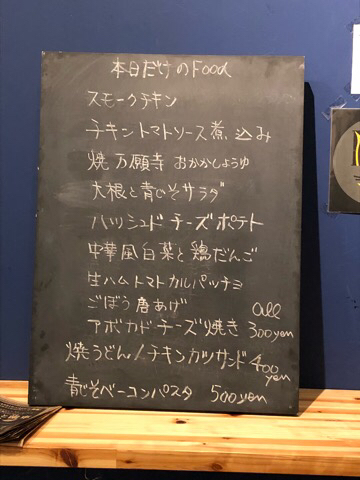 本日だけのFood
スモークチキン
チキントマトソース煮込み
焼万願寺 おかかしょうゆ
大根と青じそサラダ
ハッシュドチーズポテト
中華風白菜と鶏だんご
生ハムトマトカルパッチョ
ごぼう唐あげ
アボカドチーズ焼き all 300yen
焼うどん/チキンカツサンド 400yen
青じそベーコンパスタ 500yen